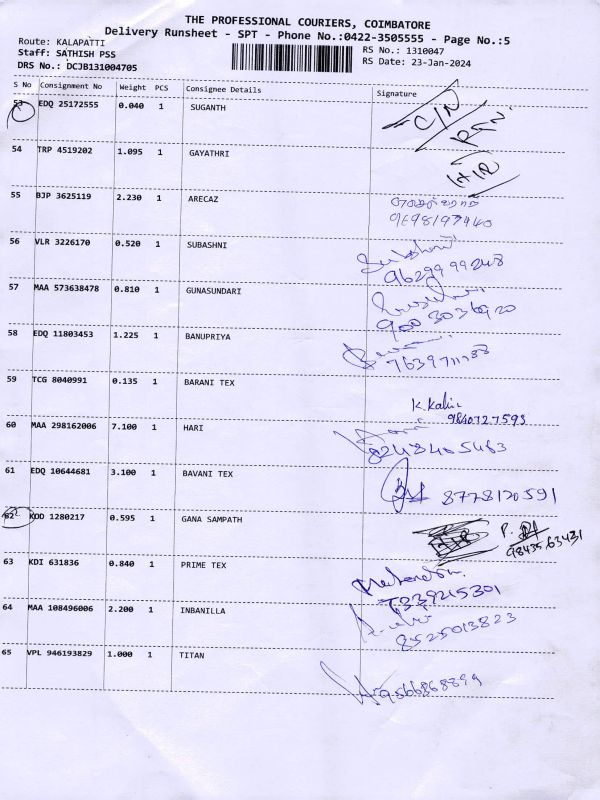 THE PROFESSIONAL COURIERS, COIMBATORE
Delivery Runsheet - SPT - Phone No.:0422-3505555 - Page No.:5
Route: KALAPATTI
Staff: SATHISH PSS
DRS No.: DCJB131004705
RS No.: 1310047
RS Date: 23-Jan-2024
S No Consignment No Weight PCS Consignee Details Signature
53 EDQ 25172555 0.040 1 SUGANTH
54 TRP 4519202 1.095 1 GAYATHRI
55 BJP 3625119 2.230 1 ARECAZ
56 VLR 3226170 0.520 1 SUBASHNI
9629999248
57 MAA 573638478 0.810 1 GUNASUNDARI
58 EDQ 11803453 1.225 1 BANUPRIYA
59 TCG 8040991 0.135 1 BARANI TEX
K. Kalin
9840727593
60 MAA 298162006 7.100 1 HARI
8248405483
61 EDQ 10644681 3.100 1 BAVANI TEX
8778120591
62 KOD 1280217 0.595 1 GANA SAMPATH
9843563431
63 KDI 631836 0.840 1 PRIME TEX
7339215301
64 MAA 108496006 2.200 1 INBANILLA
8525013823
65 VPL 946193829 1.000 1 TITAN
9566868899